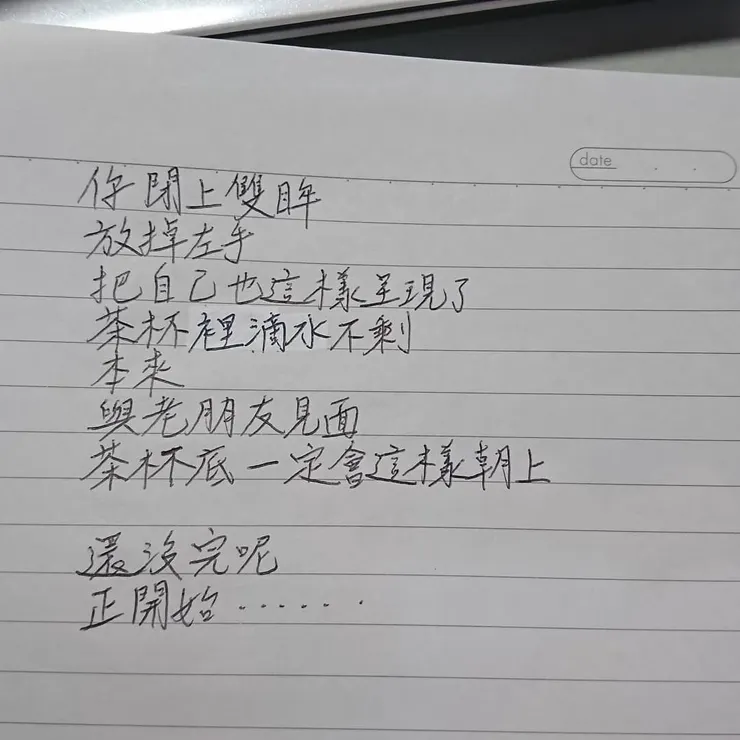 date
你閉上雙眸
放掉左手
把自己也這樣呈現了
茶杯裡滴水不剩
本來
與老朋友見面
茶杯底一定會這樣朝上
還沒完呢
正開始······